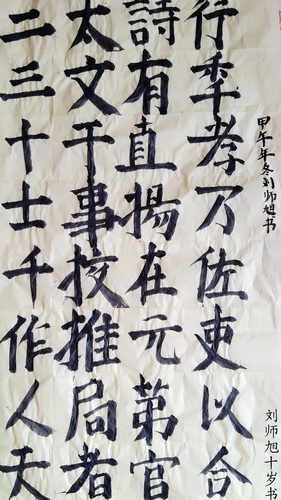 二三十士千作人天
太文于事挍推局者
詩有直揚在元苐官
行季孝万佐吏以合
甲午年冬刘师旭书
刘师旭十岁书